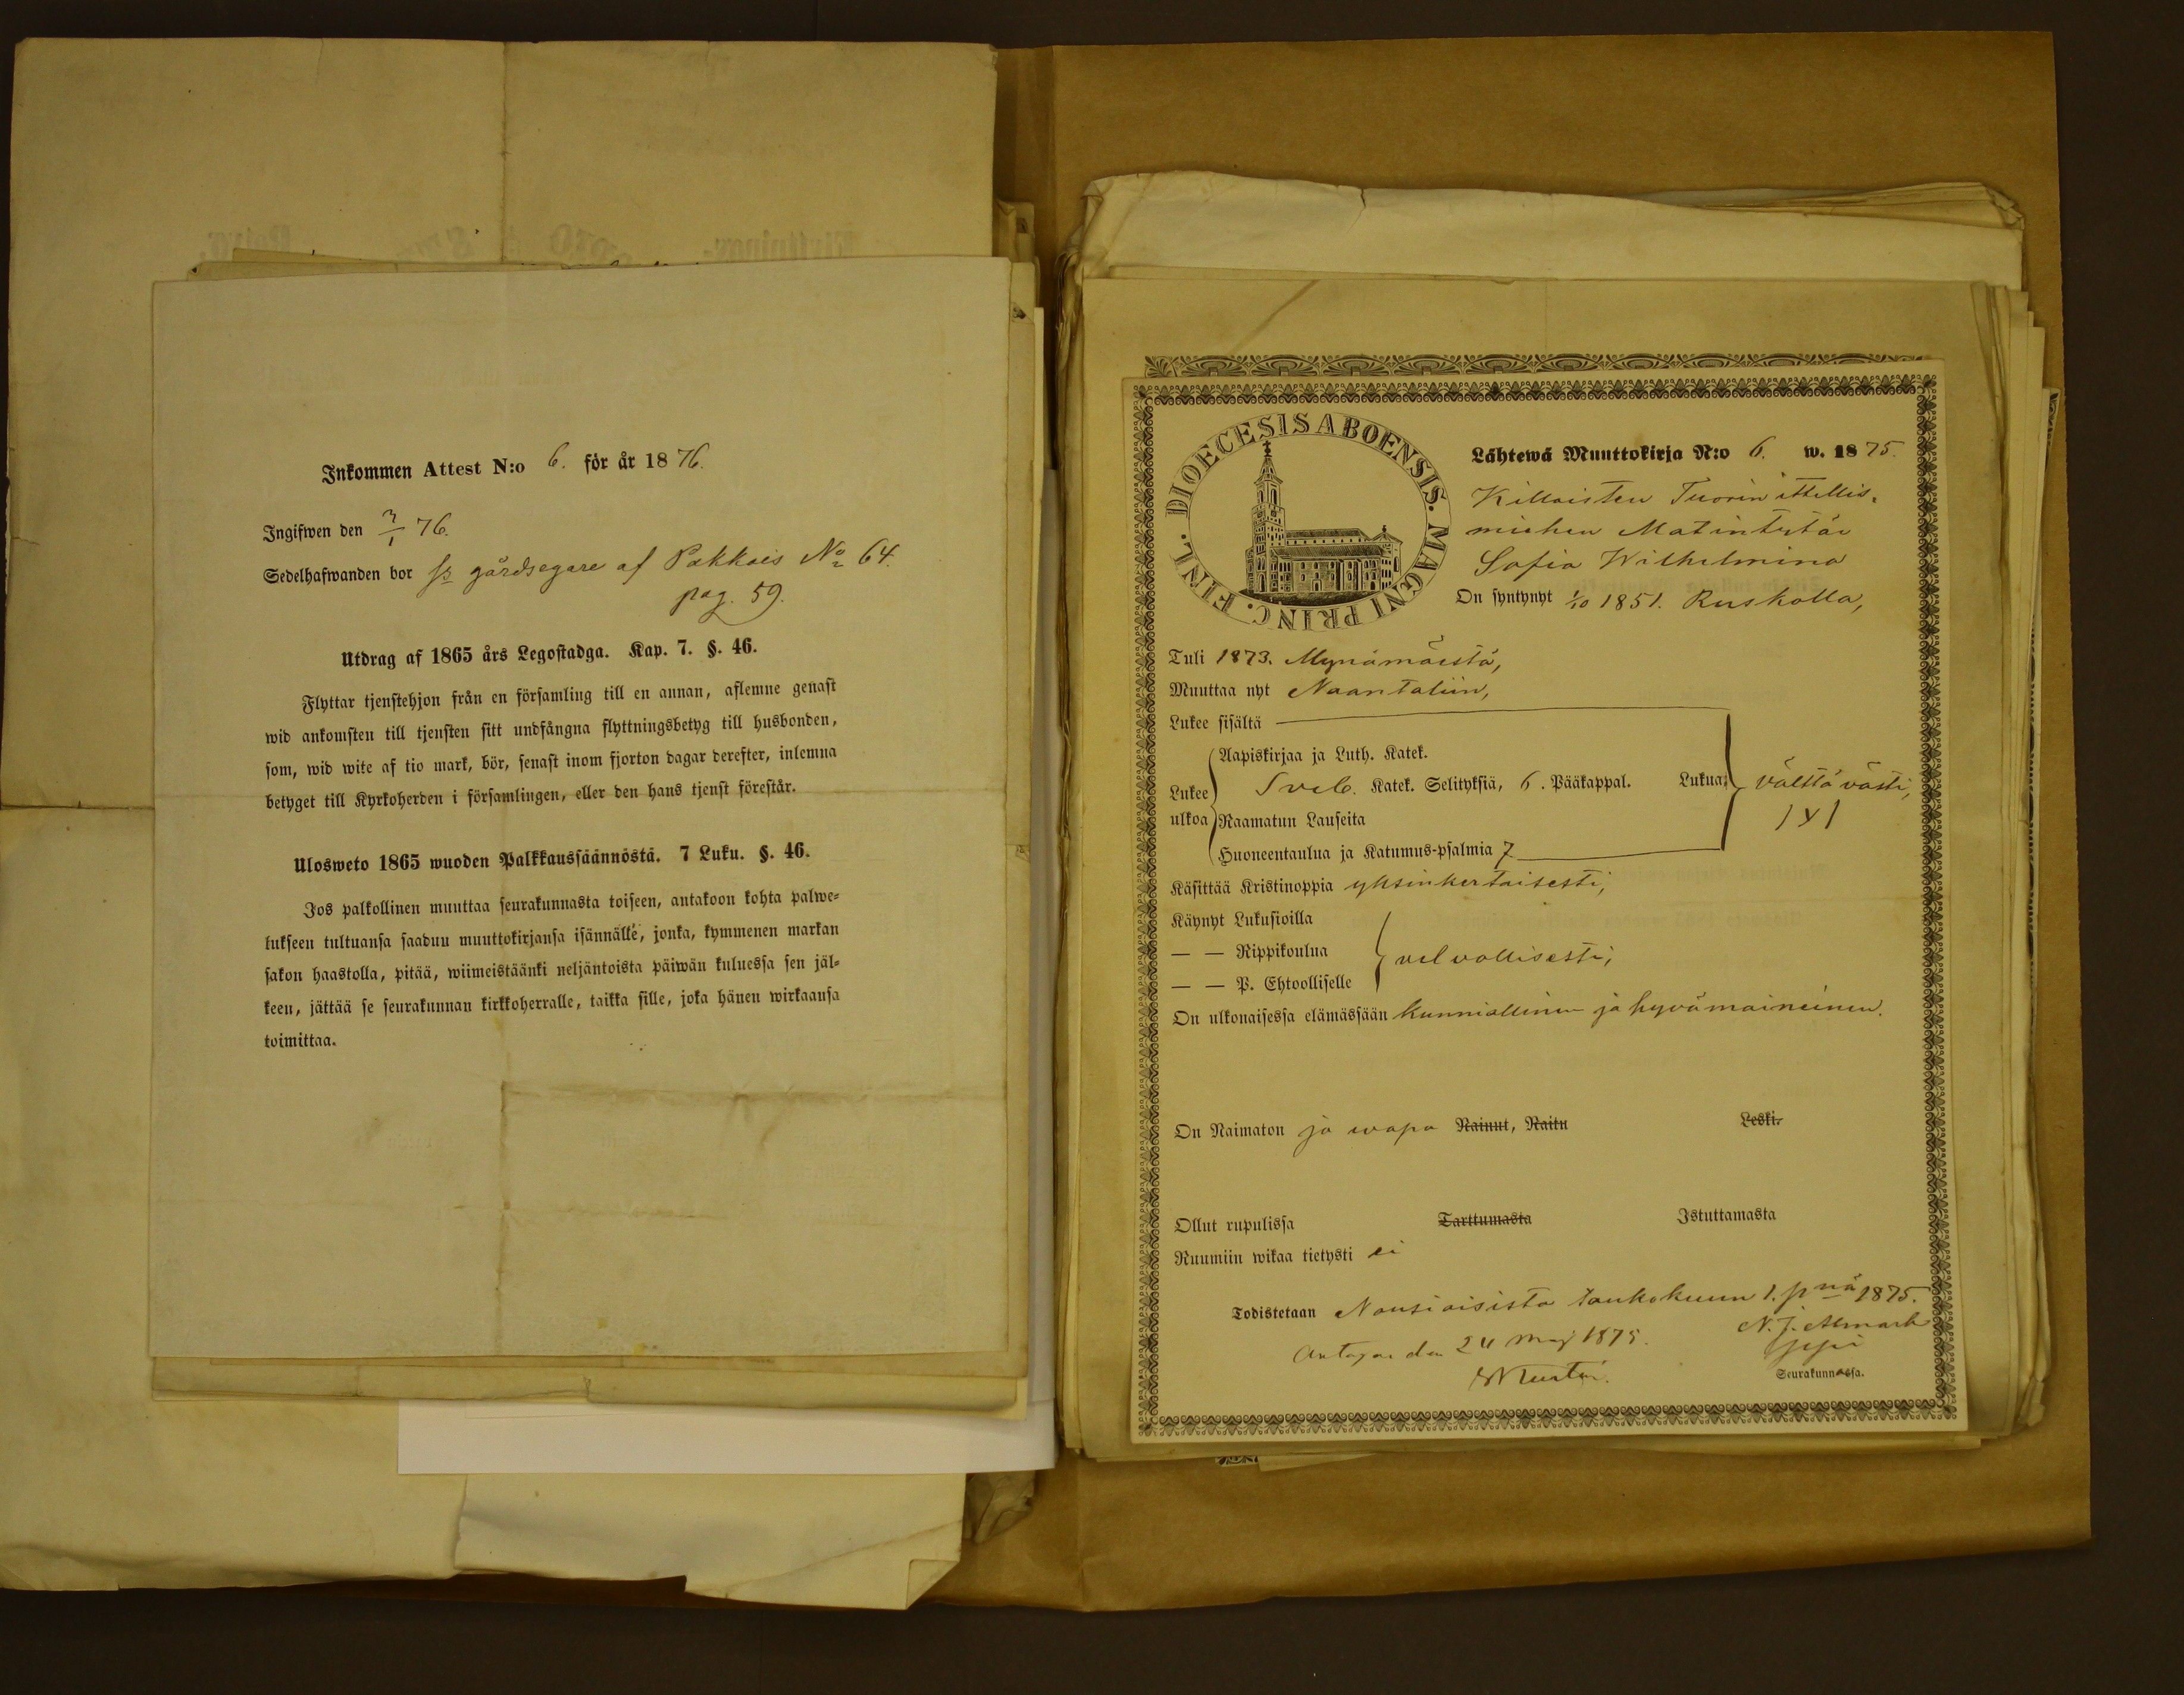 Inkommen Attest N:o 6. för år 1876.
Ingifwen den 3/1 76.
Sedelhafwanden bor ss gårdsegare af Pakkais No 64.
pag. 59.
Utdrag af 1865 års Legostadga. Kap. 7. §. 46.
Flyttar tjenstehjon från en församling till en annan, aflemne genast
wid ankomsten till tjensten sitt undfångna flyttningsbetyg till husbonden,
som, wid wite af tio mark, bör, senast inom fjorton dagar derefter, inlemna
betyget till Kyrkoherden i församlingen, eller den hans tjenst förestår.
Ulosweto 1865 wuoden Palkkaussäännöstä. 7 Luku. §. 46.
Jos palkollinen muuttaa seurakunnasta toiseen, antakoon kohta palwe=
lukseen tultuansa saadun muuttokirjansa isännälle, jonka, kymmenen markan
sakon haastolla, pitää, wiimeistäänki neljäntoista päiwän kuluessa sen jäl=
keen, jättää se seurakunnan kirkkoherralle, taikka sille, joka hänen wirkaansa
toimittaa.
DIOECESIS ABOENSIS. MAGNI PRINC. FINL.
Lähtewä Muuttokirja N:o 6. w. 1875.
Killaisten Tuorin ittellis-
miehen Matintytär
Sofia Wilhelmina
On syntynyt 1/10 1851. Ruskolla,
Tuli 1873. Mynämäestä,
Muuttaa nyt Naantaliin,
Lukee sisältä
Lukee ulkoa
Aapiskirjaa ja Luth. Katek.
Sveb. Katek. Selityksiä, 6. Pääkappal. Lukua; välttävästi,
Raamatun Lauseita
Huoneentaulua ja Katumus-psalmia 7
Käsittää Kristinoppia yksinkertaisesti,
Käynyt Lukusioilla
— — Rippikoulua velvollisesti,
— — P. Ehtoolliselle
On ulkonaisessa elämässään kunniallinen ja hyvämaineinen.
On Naimaton ja wapa Nainut, Naitu Leski.
Ollut rupulissa Tarttumasta Istuttamasta
Ruumiin wikaa tietysti ei
Todistetaan Nousiaisista toukokuun 1. pnä 1875.
N. J. Almark
Antagen den 24 Maj 1875.
Seurakunnassa.